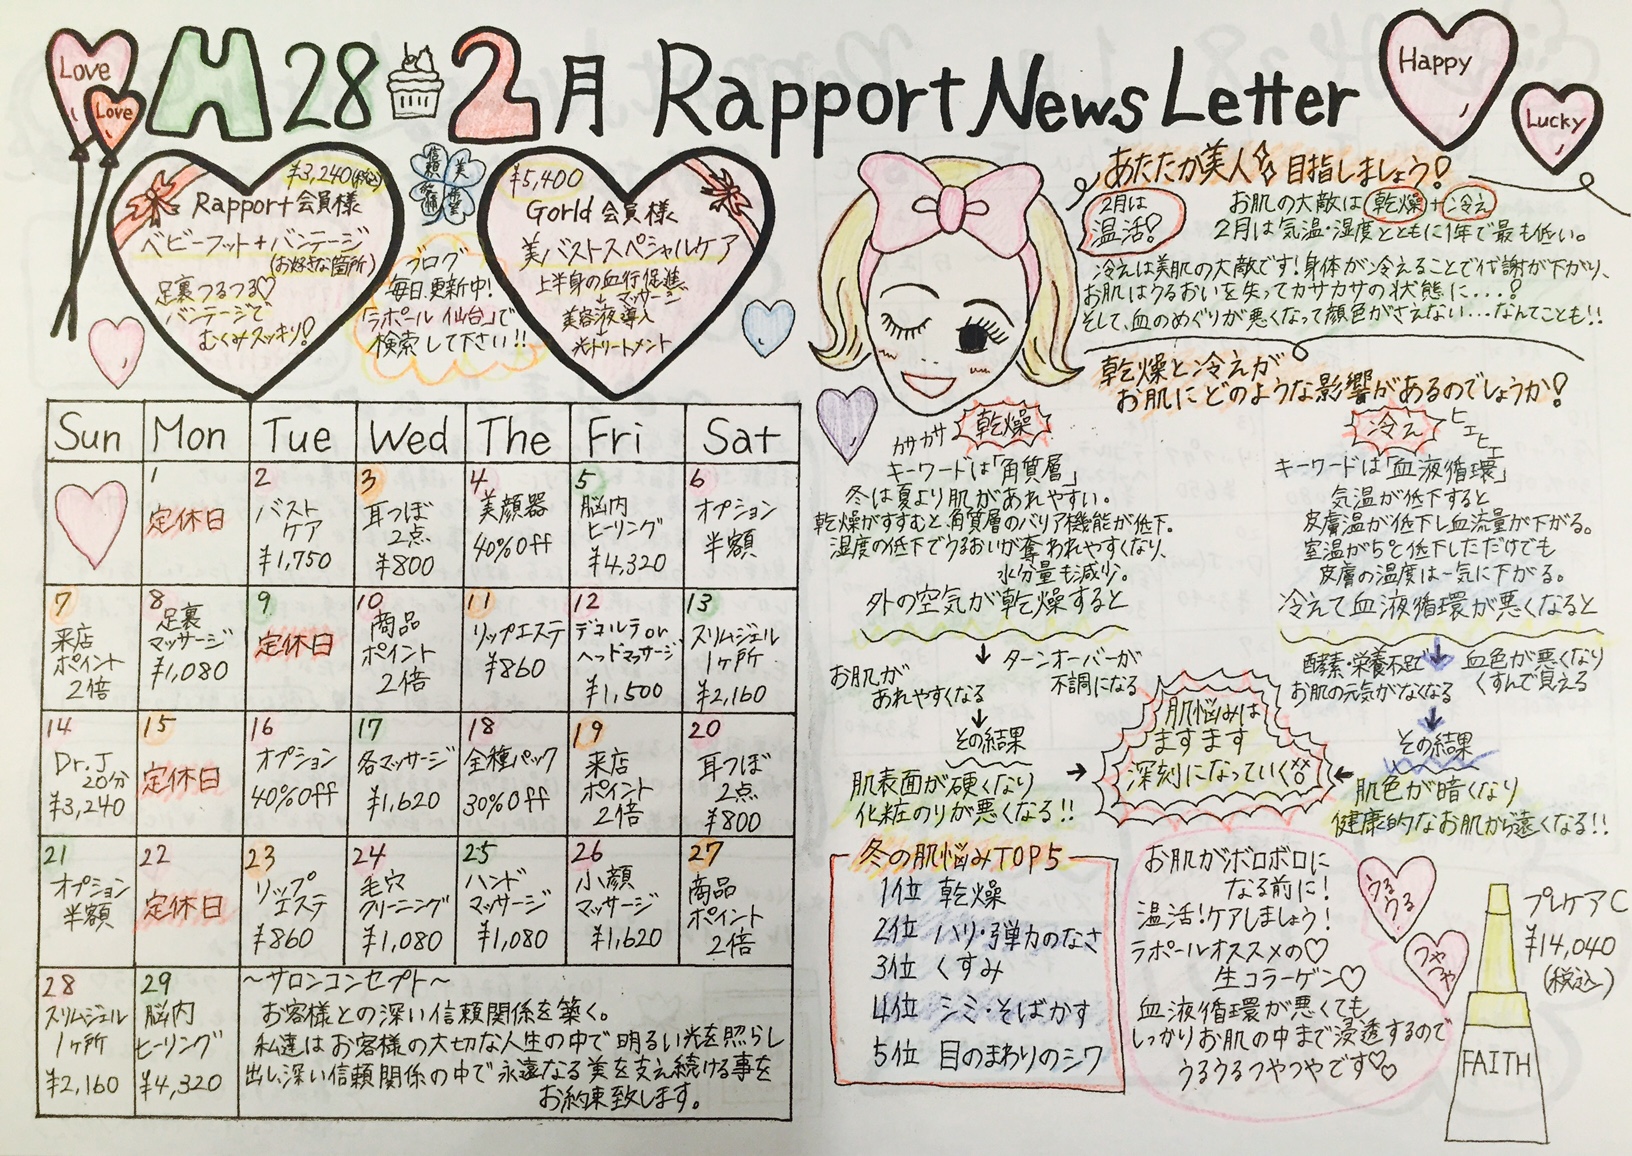 Love
Love
H28 2月 Rapport News Letter
Happy
Lucky
¥3,240(税込)
Rapport会員様
ベビーフット+バンテージ
(お好きな箇所)
足裏つるつる♡
バンテージで
むくみスッキリ!
信頼
美
感謝
ブログ
毎日更新中!
「ラポール 仙台」で
検索して下さい!!
¥5,400
Gorld会員様
美バストスペシャルケア
上半身の血行促進
↓マッサージ
美容液導入
光トリートメント
あたたか美人 目指しましょう!
2月は
温活!
お肌の大敵は 乾燥+冷え
2月は気温・湿度とともに1年で最も低い。
冷えは美肌の大敵です!身体が冷えることで代謝が下がり、
お肌はうるおいを失ってカサカサの状態に...?
そして、血のめぐりが悪くなって顔色がさえない...なんてことも!!
乾燥と冷えが
お肌にどのような影響があるのでしょうか!
カサカサ 乾燥
キーワードは「角質層」
冬は夏より肌があれやすい。
乾燥がすすむと、角質層のバリア機能が低下。
湿度の低下でうるおいが奪われやすくなり、
水分量も減少。
外の空気が乾燥すると
↓ ターンオーバーが
不調になる
お肌が
あれやすくなる
↓
その結果
肌表面が硬くなり
化粧のりが悪くなる!!
冷え ヒエヒエ
キーワードは「血液循環」
気温が低下すると
皮膚温が低下し血流量が下がる。
室温が5℃低下しただけでも
皮膚の温度は一気に下がる。
冷えて血液循環が悪くなると
酵素・栄養不足で
お肌の元気がなくなる
↓ 血色が悪くなり
くすんで見える
↓
その結果
肌色が暗くなり
健康的なお肌から遠くなる!!
→ 肌悩みは
ますます
深刻になっていく ←
Sun Mon Tue Wed The Fri Sat
1 定休日
2 バストケア ¥1,750
3 耳つぼ 2点 ¥800
4 美顔器 40%Off
5 脳内ヒーリング ¥4,320
6 オプション 半額
7 来店ポイント 2倍
8 足裏マッサージ ¥1,080
9 定休日
10 商品ポイント 2倍
11 リップエステ ¥860
12 デコルテorヘッドマッサージ ¥1,500
13 スリムジェル 1ヶ所 ¥2,160
14 Dr.J 20分 ¥3,240
15 定休日
16 オプション 40%Off
17 各マッサージ ¥1,620
18 全種パック 30%Off
19 来店ポイント 2倍
20 耳つぼ 2点 ¥800
21 オプション 半額
22 定休日
23 リップエステ ¥860
24 毛穴クリーニング ¥1,080
25 ハンドマッサージ ¥1,080
26 小顔マッサージ ¥1,620
27 商品ポイント 2倍
28 スリムジェル 1ヶ所 ¥2,160
29 脳内ヒーリング ¥4,320
〜サロンコンセプト〜
お客様との深い信頼関係を築く。
私達はお客様の大切な人生の中で明るい光を照らし
出し、深い信頼関係の中で永遠なる美を支え続ける事を
お約束致します。
冬の肌悩みTOP5
1位 乾燥
2位 ハリ・弾力のなさ
3位 くすみ
4位 シミ・そばかす
5位 目のまわりのシワ
お肌がボロボロに
なる前に!
温活!ケアしましょう!
ラポールオススメの♡
生コラーゲン♡
血液循環が悪くても
しっかりお肌の中まで浸透するので
うるうるつやつやです♡♡
うるうる
つやつや
プレケアC
¥14,040
(税込)
FAITH